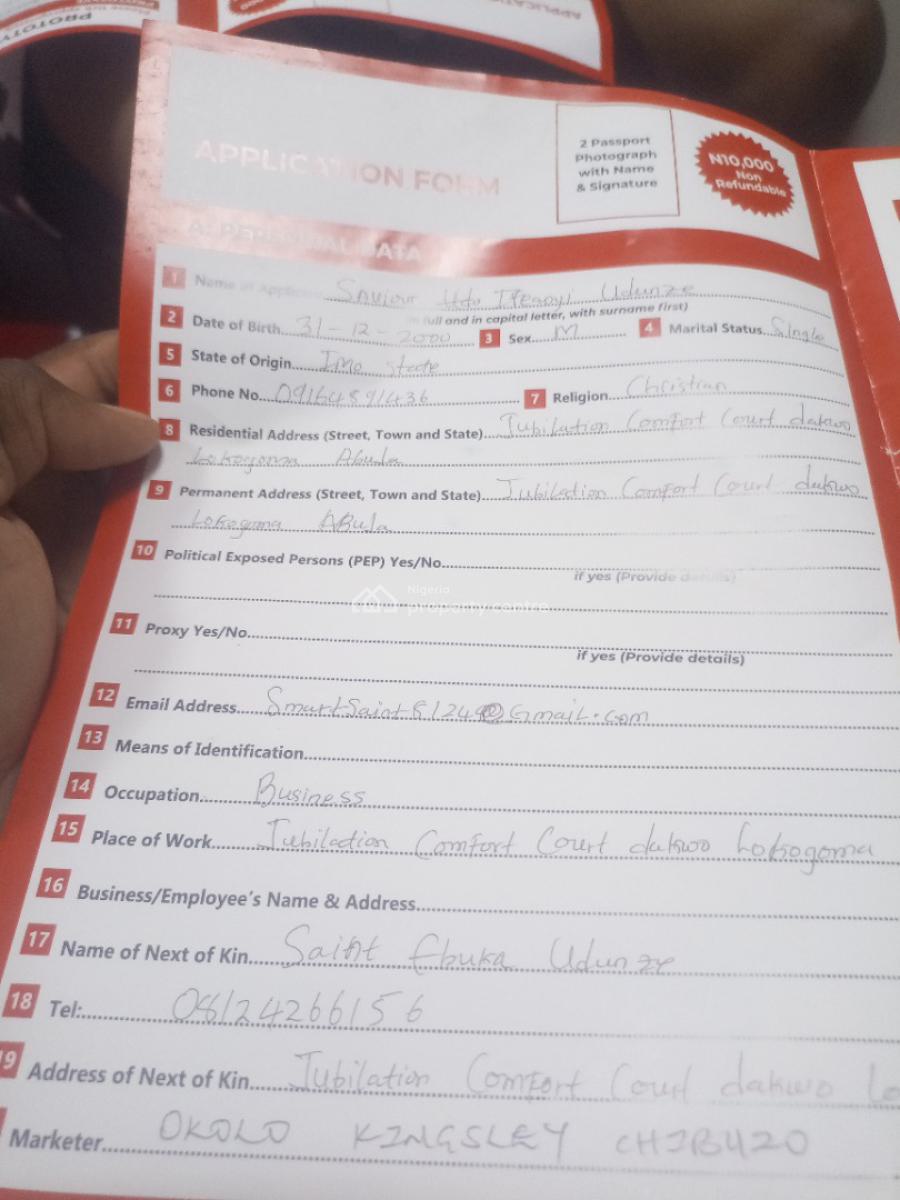 PROTOTY
APPLICATION FORM
2 Passport
Photograph
with Name
& Signature
N10,000
Non
Refundable
A: PERSONAL DATA
1 Name of Applicant Saviour Udunze
in full and in capital letter, with surname first)
2 Date of Birth 31-12-2000 3 Sex M 4 Marital Status Single
5 State of Origin Imo State
6 Phone No. 09164891436 7 Religion Christian
8 Residential Address (Street, Town and State) Jubilation Comfort Court dakwo
Lokogoma Abuja
9 Permanent Address (Street, Town and State) Jubilation Comfort Court dakwo
Lokogoma Abuja
10 Political Exposed Persons (PEP) Yes/No
if yes (Provide details)
Nigeria
property centre
11 Proxy Yes/No
if yes (Provide details)
12 Email Address
13 Means of Identification
14 Occupation Business
15 Place of Work Jubilation Comfort Court dakwo Lokogoma
16 Business/Employee's Name & Address
17 Name of Next of Kin Saint Ebuka Udunze
18 Tel: 08124266156
19 Address of Next of Kin Jubilation Comfort Court dakwo Lo
Marketer OKOLO KINGSLEY CHIBUZO